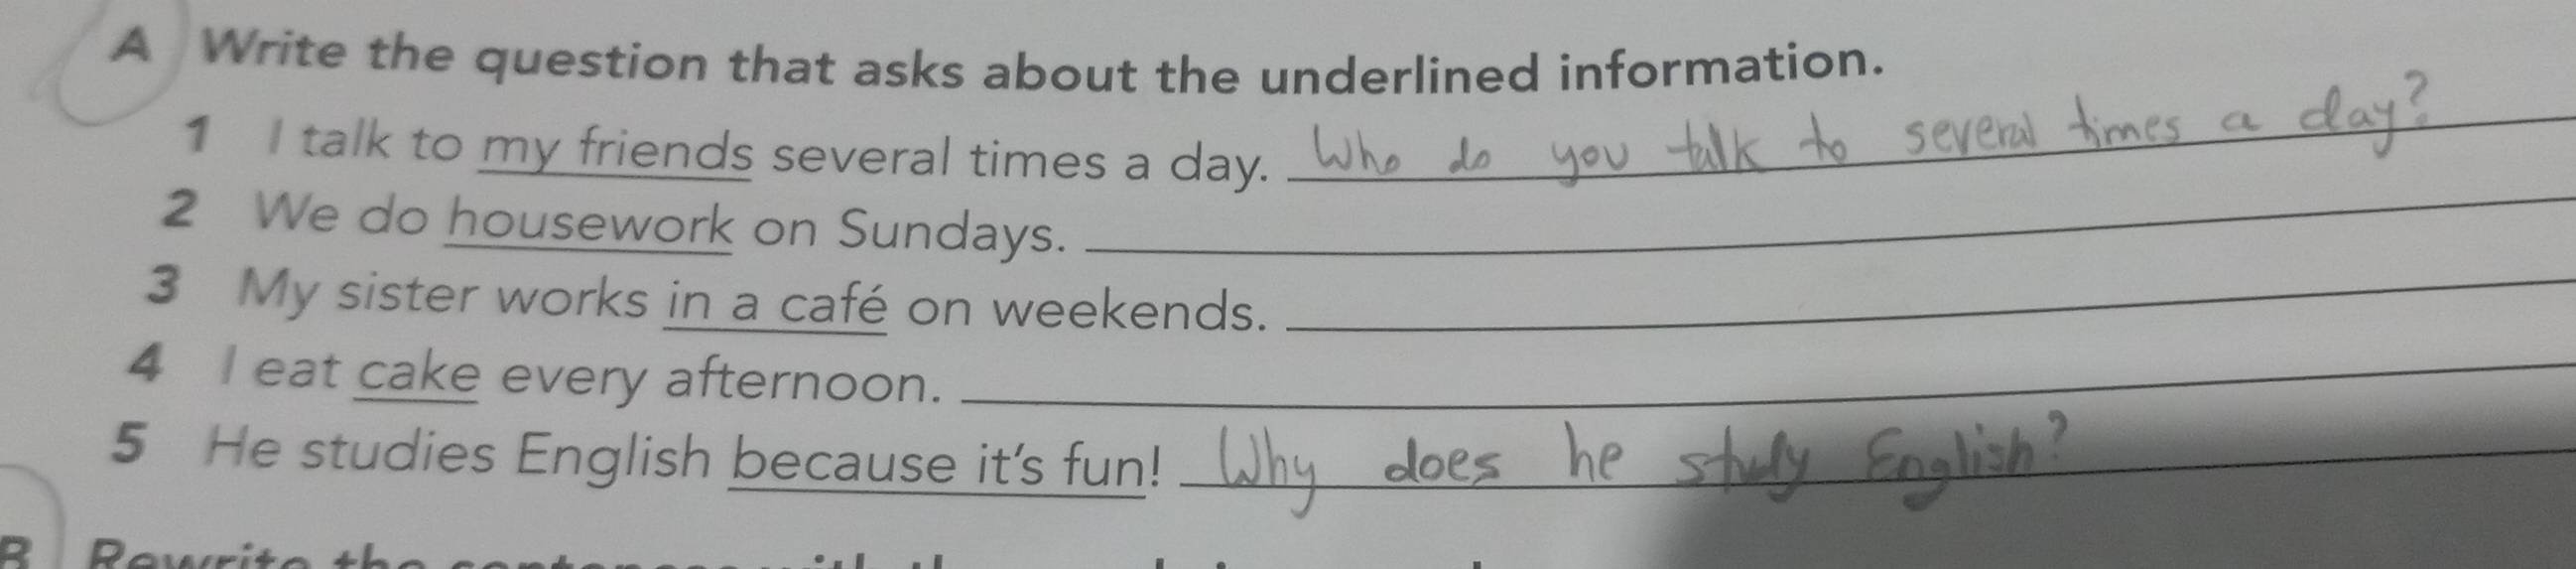 A Write the question that asks about the underlined information.
1 I talk to my friends several times a day. Who do you talk to several times a day?
2 We do housework on Sundays.
3 My sister works in a café on weekends.
4 I eat cake every afternoon.
5 He studies English because it's fun! Why does he study English?
B Rewrite the